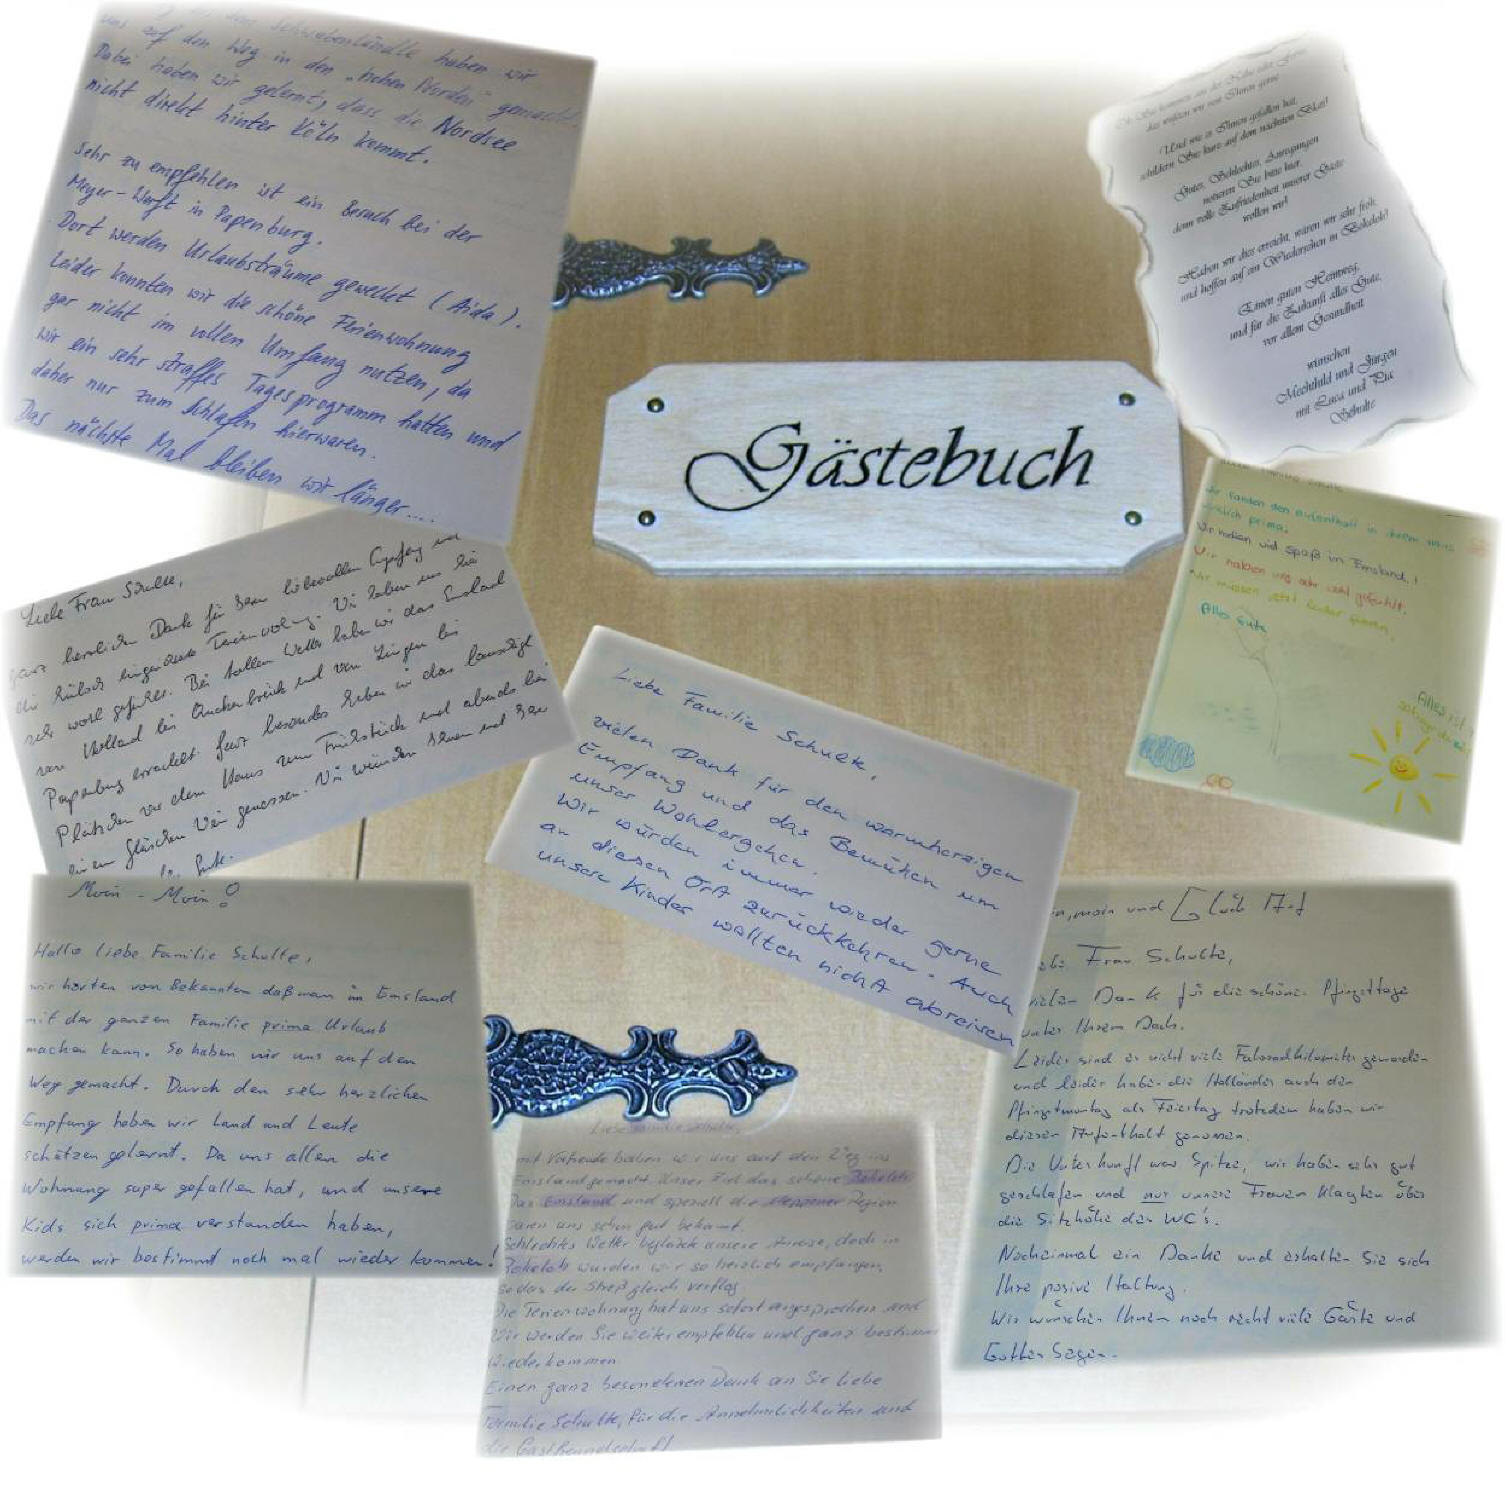 Schwabenländle haben wir
uns auf den Weg in den „hohen Norden" gemacht.
Dabei haben wir gelernt, dass die Nordsee
nicht direkt hinter Köln kommt.
Sehr zu empfehlen ist ein Besuch bei der
Meyer-Werft in Papenburg.
Dort werden Urlaubsträume geweckt (Aida).
Leider konnten wir die schöne Ferienwohnung
gar nicht im vollen Umfang nutzen, da
wir ein sehr straffes Tagesprogramm hatten und
daher nur zum Schlafen hierwaren.
Das nächste Mal bleiben wir länger....
Und wie es Ihnen gefallen hat,
schildern Sie kurz auf dem nächsten Blatt!
Gutes, Schlechtes, Anregungen
notieren Sie bitte hier,
denn volle Zufriedenheit unserer Gäste
wollen wir!
Haben wir dies erreicht, wären wir sehr froh,
und hoffen auf ein Wiedersehen in Bokeloh!
Einen guten Heimweg,
und für die Zukunft alles Gute,
vor allem Gesundheit
wünschen
Mechthild und Jürgen
mit Luca und Pia
Schulte
Gästebuch
Wir fanden den aufenthalt in ihrem Haus
wirklich prima.
Wir hatten viel Spaß im Emsland!
Wir haben uns sehr wohl gefühlt.
Wir müssen jetzt leider fahren.
Alles Gute
Alles ist
Liebe Frau Schulte,
ganz herzlichen Dank für den liebevollen Empfang und
die hübsch eingerichtete Ferienwohnung. Wir haben uns hier
sehr wohl gefühlt. Bei tollem Wetter haben wir das Emsland
von Holland bis Quakenbrück und von Lingen bis
Papenburg erradelt. Ganz besonders haben wir das lauschige
Plätzchen vor dem Haus zum Frühstück und abends bei
einem Gläschen Wein genossen. Wir wünschen Ihnen und
Gute.
Liebe Familie Schulte,
vielen Dank für den warmherzigen
Empfang und das Bemühen um
unser Wohlergehen.
Wir würden immer wieder gerne
an diesen Ort zurückkehren. Auch
unsere Kinder wollten nicht abreisen
Moin - Moin!
Hallo liebe Familie Schulte,
wir hörten von Bekannten daß man im Emsland
mit der ganzen Familie prima Urlaub
machen kann. So haben wir uns auf den
Weg gemacht. Durch den sehr herzlichen
Empfang haben wir Land und Leute
schätzen gelernt. Da uns allen die
Wohnung super gefallen hat, und unsere
Kids sich prima verstanden haben,
werden wir bestimmt noch mal wieder kommen!
Liebe Familie Schulte,
mit Vorfreude haben wir uns auf den Weg ins
Emsland gemacht. Unser Ziel das schöne Bokeloh.
Das Emsland und speziell die Meppener Region
waren uns schon gut bekannt.
Schlechtes Wetter beglückte unsere Anreise, doch in
Bokeloh wurden wir so herzlich empfangen,
sodas der Streß gleich verflog.
Die Ferienwohnung hat uns sofort angesprochen und
Wir werden Sie weiterempfehlen und ganz bestimmt
wiederkommen.
Einen ganz besonderen Dank an Sie liebe
Familie Schulte, für die Annehmlichkeiten und
die Gastfreundschaft!
moin und Glück Auf
Frau Schulte,
vielen Dank für die schönen Pfingsttage
unter Ihrem Dach.
Leider sind es nicht viele Fahrradkilometer geworden
und leider haben die Holländer auch den
Pfingstmontag als Feiertag trotzdem haben wir
diesen Aufenthalt genossen.
Die Unterkunft war Spitze, wir haben sehr gut
geschlafen und nur unsere Frauen klagten über
die Sitzhöhe der WC's.
Nocheinmal ein Danke und erhalten Sie sich
Ihre posive Haltung.
Wir wünschen Ihnen noch recht viele Gäste und
Gottes Segen.